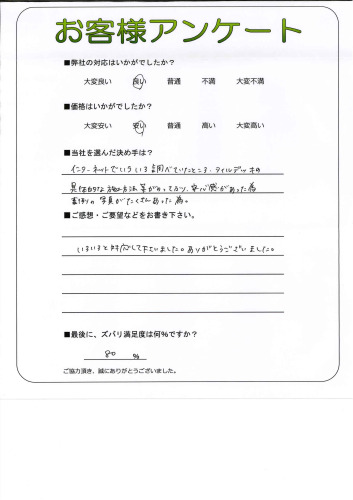 お客様アンケート
■弊社の対応はいかがでしたか？
大変良い 良い 普通 不満 大変不満
■価格はいかがでしたか？
大変安い 安い 普通 高い 大変高い
■当社を選んだ決め手は？
インターネットでいろいろ調べていたところ、タイルデッキの
具体的な施工方法等がのっており、安心感があった為
書類の写真がたくさんあった為。
■ご感想・ご要望などをお書き下さい。
いろいろと対応して下さいました。ありがとうございました。
■最後に、ズバリ満足度は何％ですか？
80 %
ご協力頂き、誠にありがとうございました。